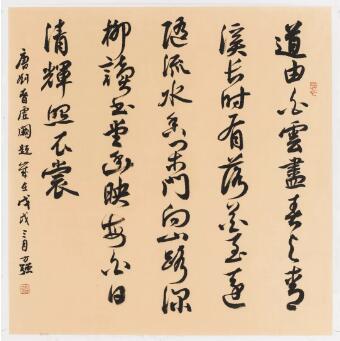 道由白雲盡春与青
溪長時有落花至遠
隨流水香閒門向山路深
柳讀書堂幽映每白日
清輝照衣裳
唐劉眘虛闕題歲在戊戌三月